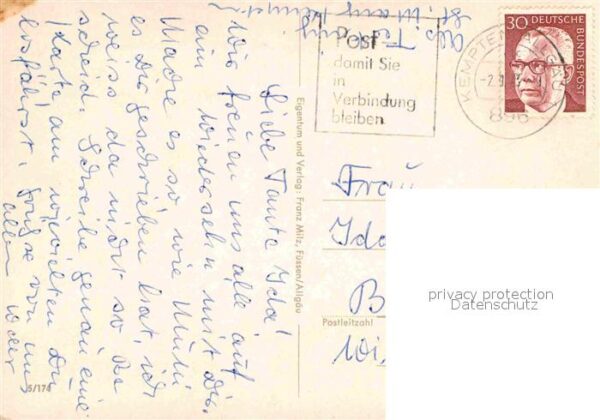 Liebe Tante Ida!
Wir freuen uns alle auf
ein Wiedersehn mit Dir.
Wäre es so wie Mutti
es Dir geschrieben hat, ich
weiss da nicht so Be
scheid. Schreibe genau eine
Karte, am wievielten Du
losfährst. Grüße von uns
allen
Post
damit Sie
in
Verbindung
bleiben
30 DEUTSCHE
BUNDESPOST
KEMPTEN
896
Eigentum und Verlag: Franz Milz, Füssen/Allgäu
Frau
Ida
B
Postleitzahl
Wi
privacy protection
Datenschutz
5/174